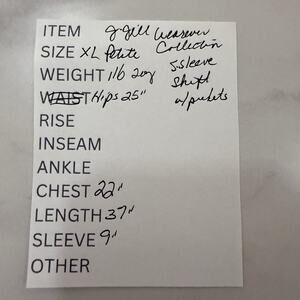 ITEM J. Jill Wearever
SIZE XL Petite Collection
WEIGHT 1lb 2oz S-Sleeve
WAIST Hips 25" Shift
RISE w/pockets
INSEAM
ANKLE
CHEST 22"
LENGTH 37"
SLEEVE 9"
OTHER